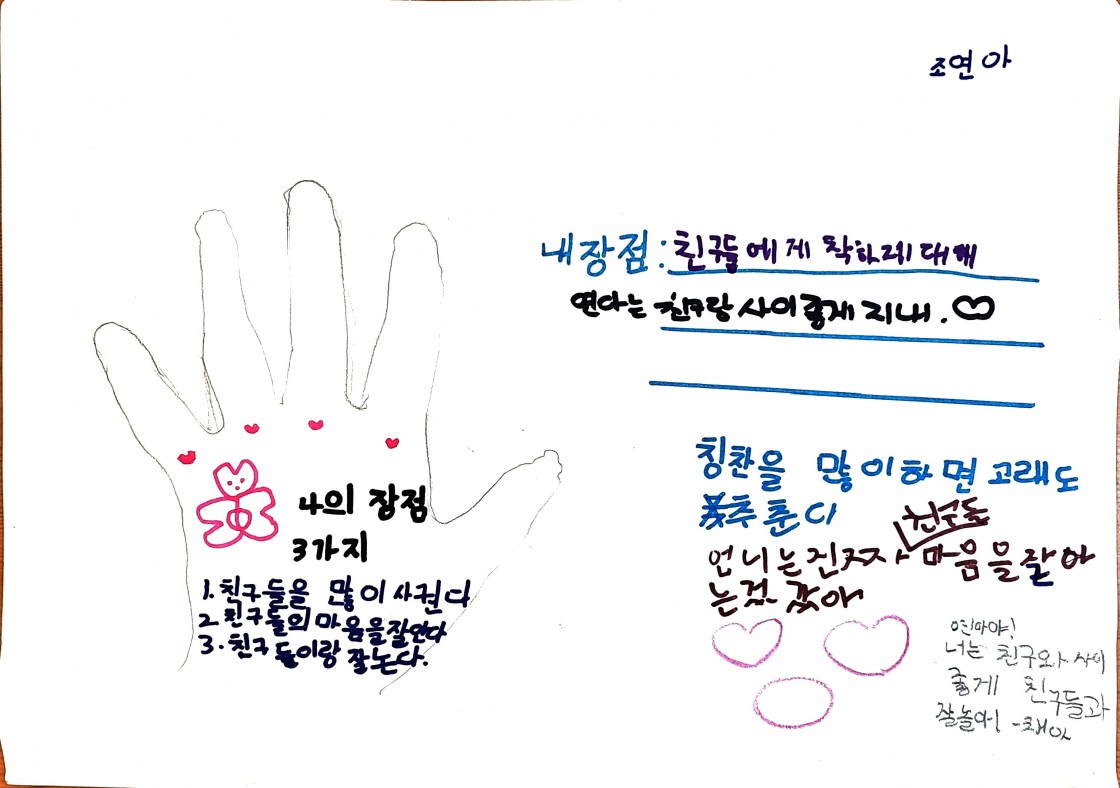 조연아
내장점: 친구들에게 착하게 대해
연아는 친구랑 사이 좋게 지내.
나의 장점
3가지
1. 친구들을 많이 사귄다
2. 친구들의 마음을 잘안다
3. 친구들이랑 잘논다.
칭찬을 많이하면 고래도
춤추춘다
친구들
언니는진짜 마음을잘아
는것 같아
연아야!
너는 친구와 사이
좋게 친구들과
잘놀아! -채아